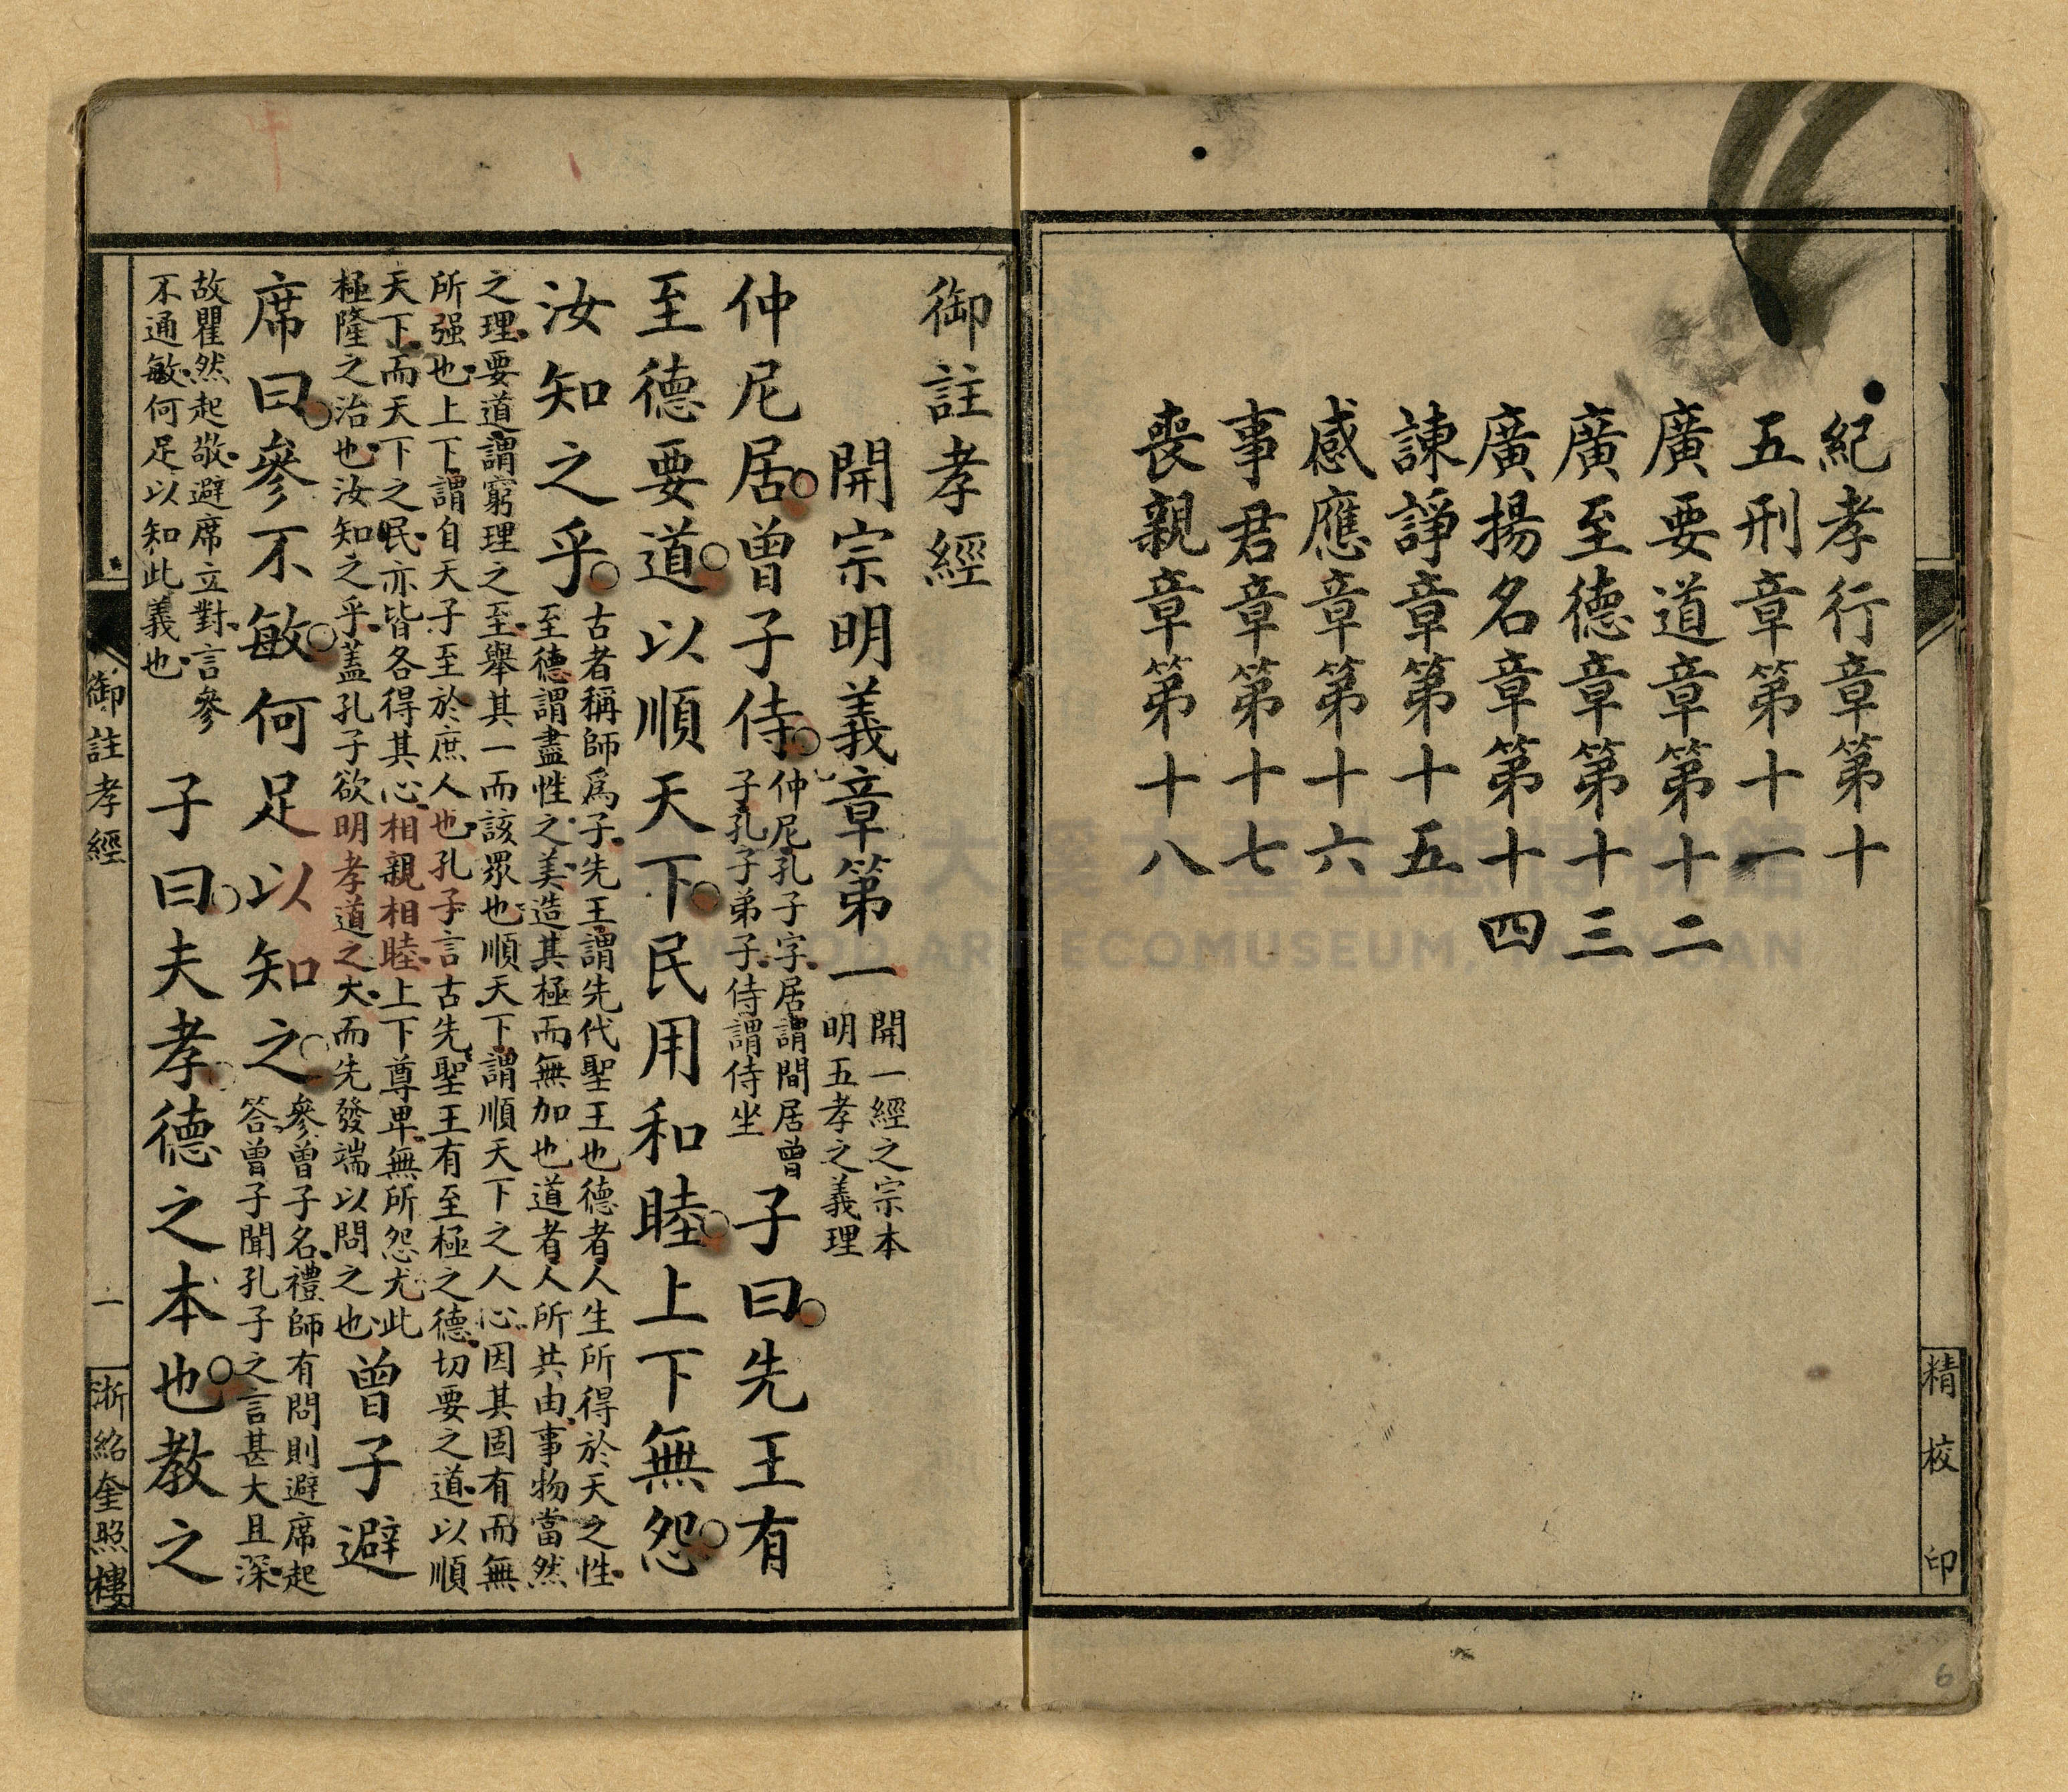 紀孝行章第十
五刑章第十一
廣要道章第十二
廣至德章第十三
廣揚名章第十四
諫諍章第十五
感應章第十六
事君章第十七
喪親章第十八
精校印
6
御註孝經
開宗明義章第一
開一經之宗本
明五孝之義理
仲尼居曾子侍
仲尼孔子字居謂閒居曾
子孔子弟子侍謂侍坐
子曰先王有
至德要道以順天下民用和睦上下無怨
汝知之乎
古者稱師爲子先王謂先代聖王也德者人生所得於天之性
至德謂盡性之美造其極而無加也道者人所共由事物當然
之理要道謂窮理之至舉其一而該眾也順天下謂順天下之人心因其固有而無
所强也上下謂自天子至於庶人也孔子言古先聖王有至極之德切要之道以順
天下而天下之民亦皆各得其心相親相睦上下尊卑無所怨尤此
極隆之治也汝知之乎蓋孔子欲明孝道之大而先發端以問之也
曾子避
席曰參不敏何足以知之
參曾子名禮師有問則避席起
答曾子聞孔子之言甚大且深
故瞿然起敬避席立對言參
不通敏何足以知此義也
子曰夫孝德之本也教之
御註孝經
一
浙紹奎照樓
大溪木藝生態博物館
WOOD ART ECOMUSEUM, TAOYUAN